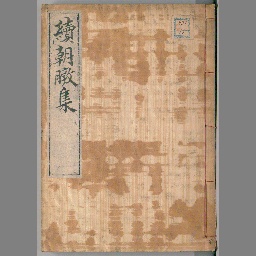 續朝暾集